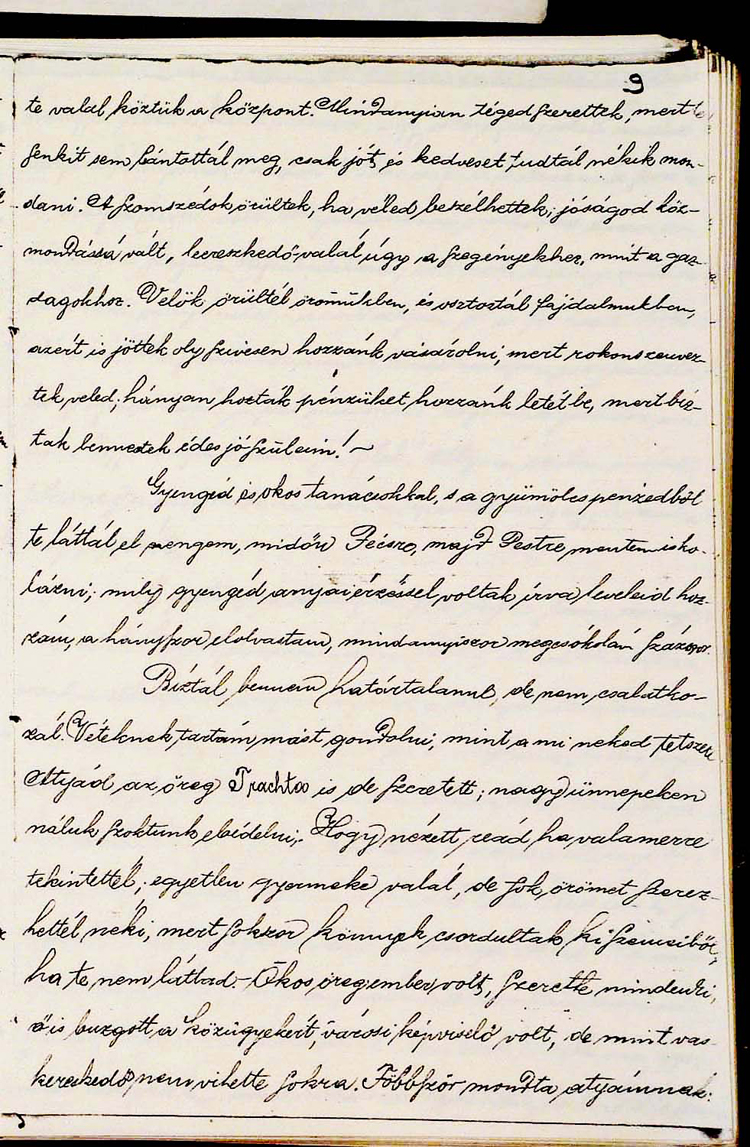 9
te valál köztük a központ. Mindanyian téged szerettek, mert
senkit sem bántottál meg, csak jót és kedveset tudtál nékik mon-
dani. A szomszédok örültek, ha véled beszélhettek; jóságod köz-
mondássá vált, leereszkedő valál úgy a szegényekhez, mint a gaz-
dagokhoz. Velök örültél örömükben, és osztoztál fájdalmukban,
azért is jöttek oly szivesen hozzánk vásárolni, mert rokonszenvez-
tek veled; hányan hozták pénzüket hozzánk letétbe, mert biz-
tak bennetek édes jó szüleim! ~
Gyengéd és okos tanácsokkal, s a gyümölcs pénzedből
te láttál el engem, midőn Pécsre, majd Pestre mentem isko-
lázni; mily gyengéd anyai érzéssel voltak írva leveleid hoz-
zám, a hányszor elolvastam, mindannyiszor megcsókolám százszor.
Bíztál bennem határtalanul, de nem csalatko-
zál. Vétéknek tartám mást gondolni, mint a mi neked tetszett
Atyád az öreg Trachta is de szeretett; nagy ünnepeken
náluk szoktunk ebédelni. Hogy nézett reád ha valamerre
tekintettél; egyetlen gyermeke valál, de sok örömet szerez-
hettél néki, mert sokszor könnyek csordultak ki szemeiből,
ha te nem láttad. – Okos öreg ember volt, szerette mindenki,
ő is buzgott a közügyekért, városi képviselő volt, de mint vas-
kereskedő nem vihette sokra. Többször mondta atyámnak: